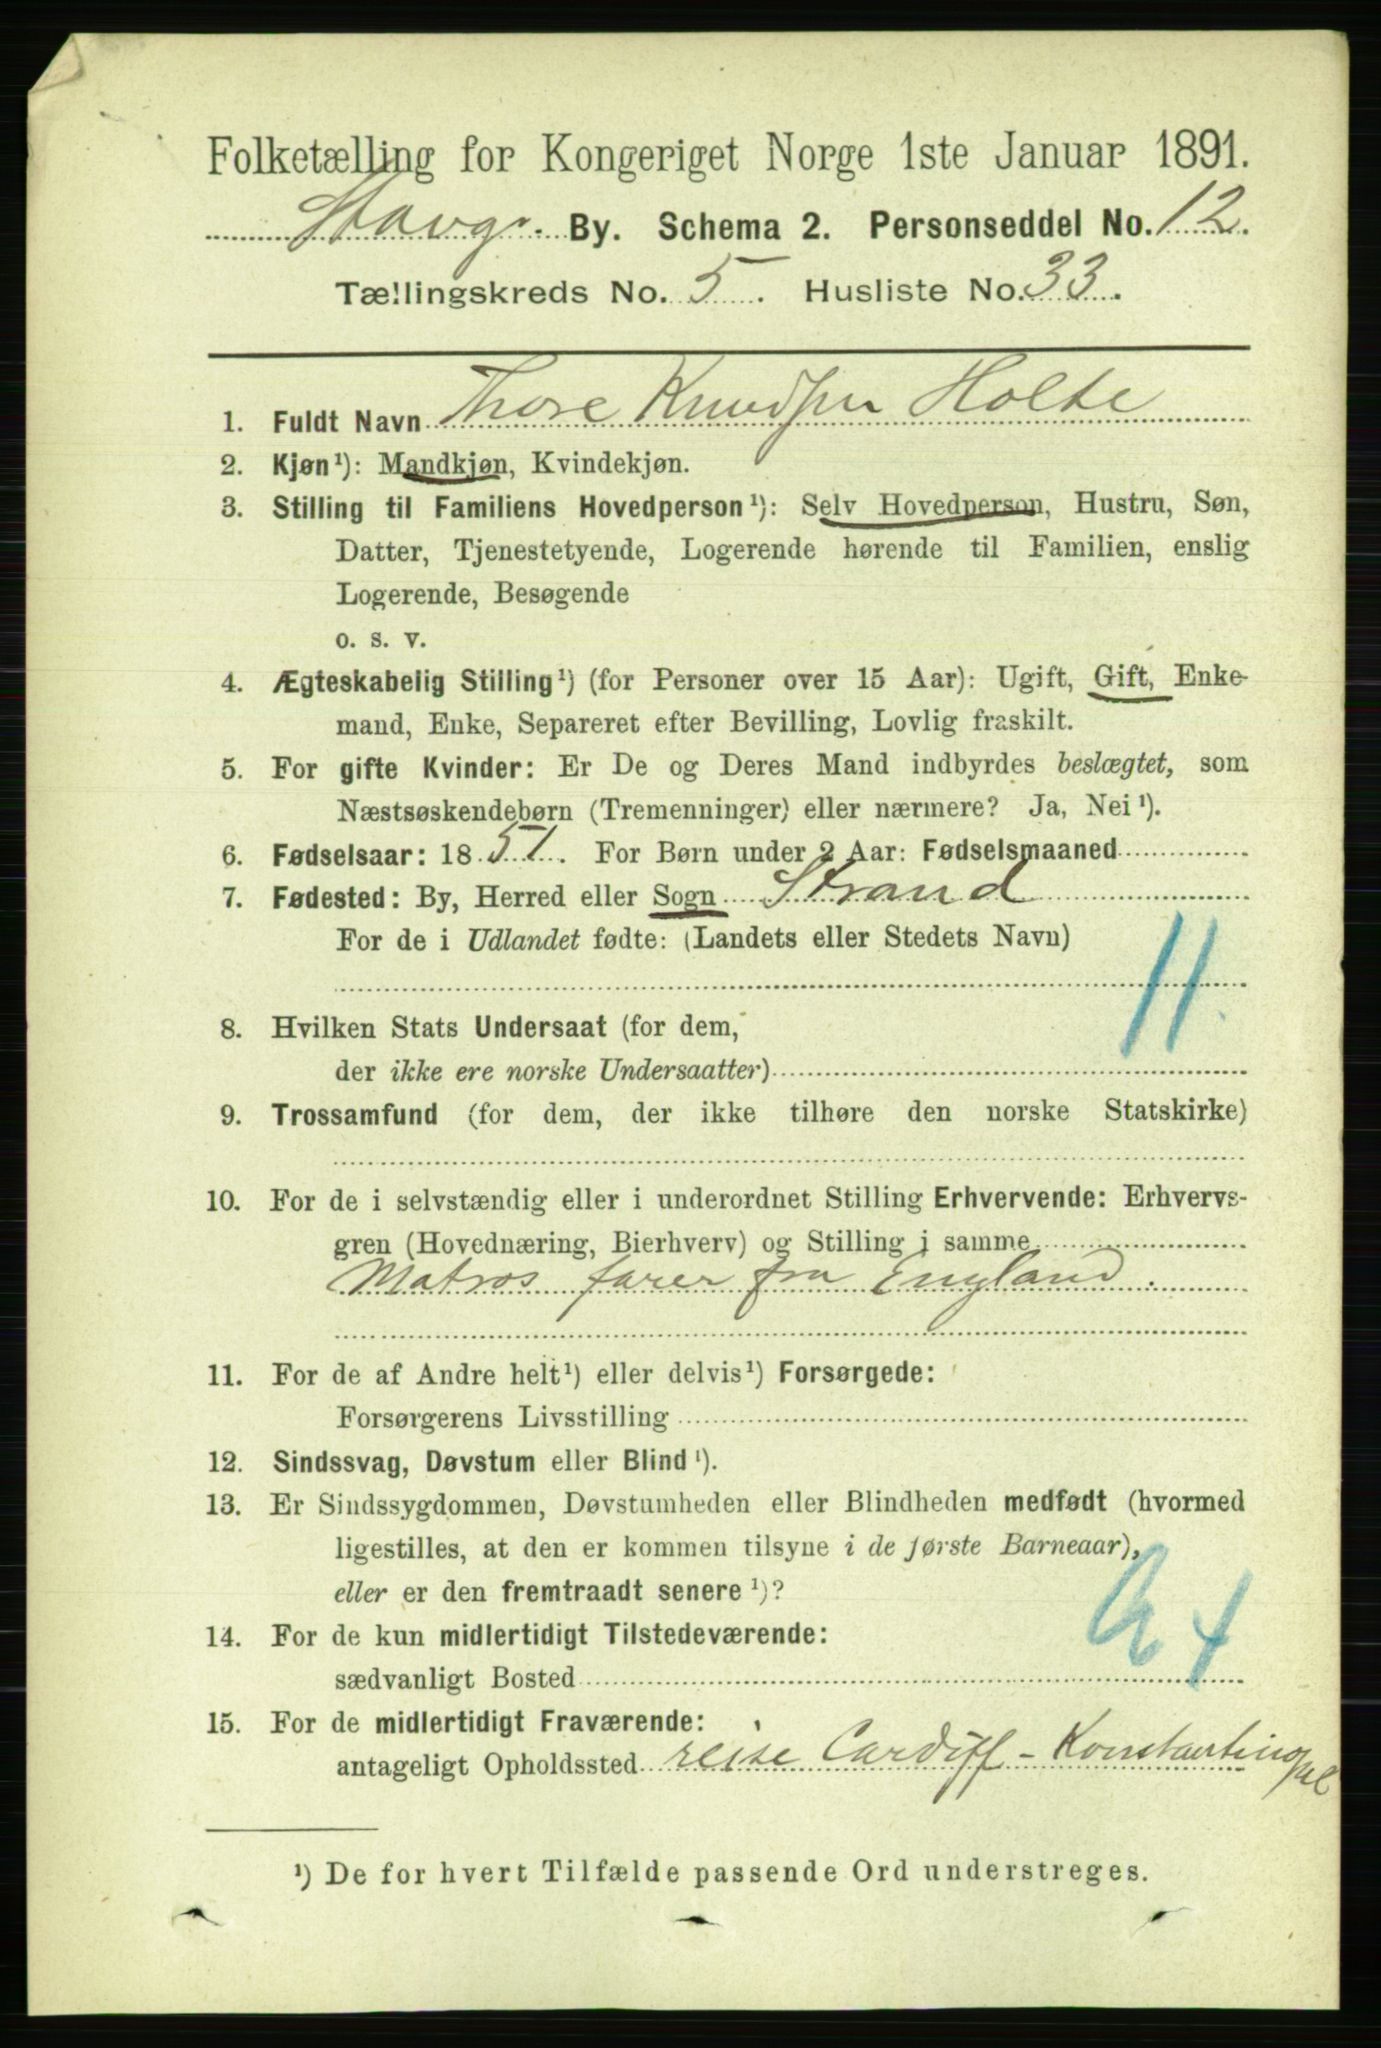 Folketælling for Kongeriget Norge 1ste Januar 1891.
Stavgr. By. Schema 2. Personseddel No. 12.
Tællingskreds No. 5. Husliste No. 33.
1. Fuldt Navn Thore Knudsen Holte
2. Kjøn¹): Mandkjøn, Kvindekjøn.
3. Stilling til Familiens Hovedperson¹): Selv Hovedperson, Hustru, Søn,
Datter, Tjenestetyende, Logerende hørende til Familien, enslig
Logerende, Besøgende
o. s. v.
4. Ægteskabelig Stilling¹) (for Personer over 15 Aar): Ugift, Gift, Enke-
mand, Enke, Separeret efter Bevilling, Lovlig fraskilt.
5. For gifte Kvinder: Er De og Deres Mand indbyrdes beslægtet, som
Næstsøskendebørn (Tremenninger) eller nærmere? Ja, Nei¹).
6. Fødselsaar: 1851. For Børn under 2 Aar: Fødselsmaaned
7. Fødested: By, Herred eller Sogn Strand
For de i Udlandet fødte: (Landets eller Stedets Navn)
11.
8. Hvilken Stats Undersaat (for dem,
der ikke ere norske Undersaatter)
9. Trossamfund (for dem, der ikke tilhøre den norske Statskirke)
10. For de i selvstændig eller i underordnet Stilling Erhvervende: Erhvervs-
gren (Hovednæring, Bierhverv) og Stilling i samme
Matros farer fra England.
11. For de af Andre helt¹) eller delvis¹) Forsørgede:
Forsørgerens Livsstilling
12. Sindssvag, Døvstum eller Blind¹).
13. Er Sindssygdommen, Døvstumheden eller Blindheden medfødt (hvormed
ligestilles, at den er kommen tilsyne i de første Barneaar),
eller er den fremtraadt senere¹)?
14. For de kun midlertidigt Tilstedeværende:
sædvanligt Bosted
15. For de midlertidigt Fraværende:
antageligt Opholdssted reise Cardiff - Konstantinopel
¹) De for hvert Tilfælde passende Ord understreges.